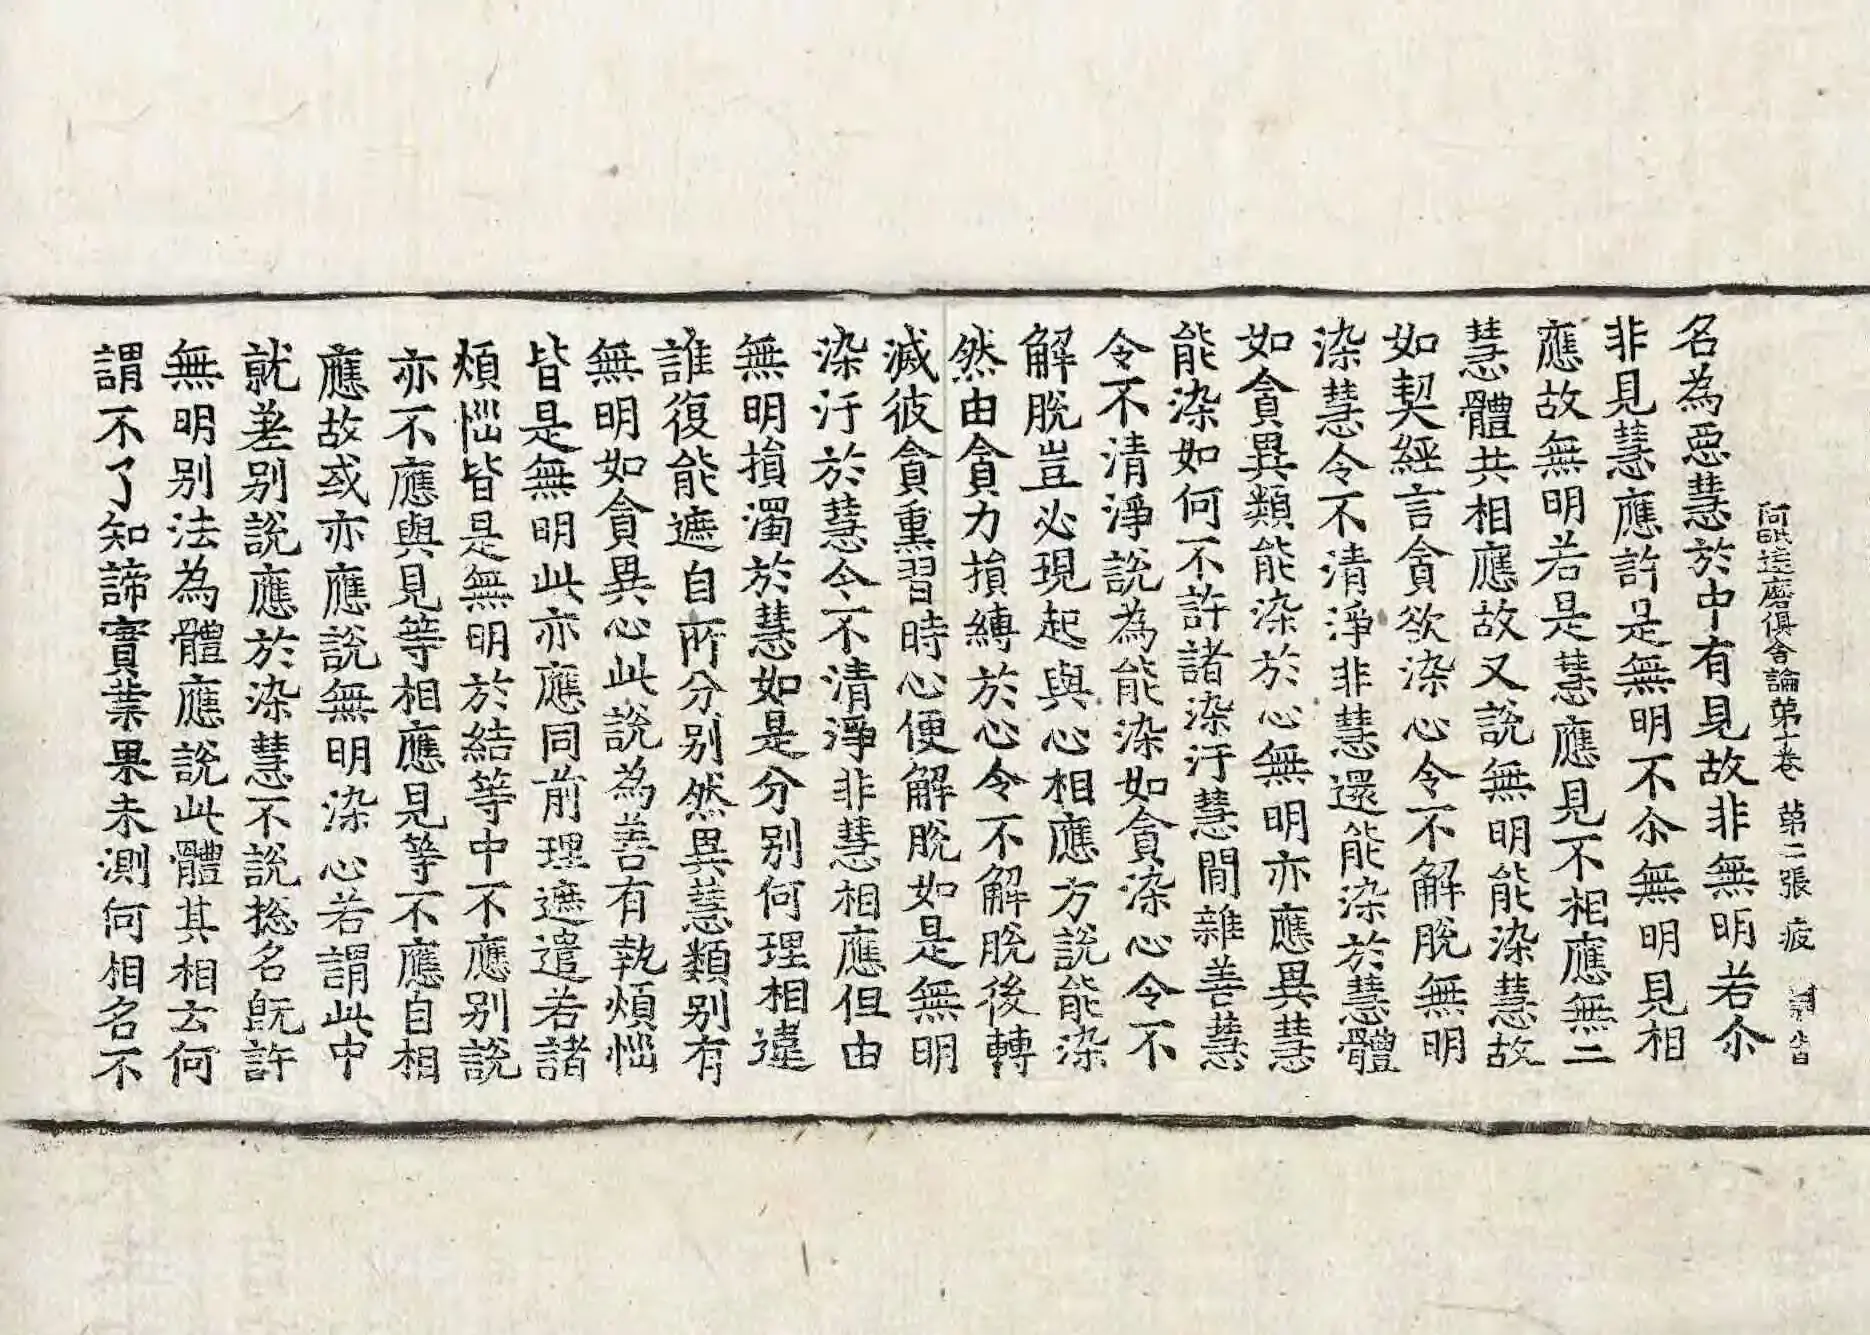 阿毗達磨俱舍論第十卷 第二張 疲
名為惡慧於中有見故非無明若尒
非見慧應許是無明不尒無明見相
應故無明若是慧應見不相應無二
慧體共相應故又說無明能染慧故
如契經言貪欲染心令不解脫無明
染慧令不清淨非慧還能染於慧體
如貪異類能染於心無明亦應異慧
能染如何不許諸染汙慧間雜善慧
令不清淨說為能染如貪染心令不
解脫豈必現起與心相應方說能染
然由貪力損縛於心令不解脫後轉
滅彼貪熏習時心便解脫如是無明
染汙於慧令不清淨非慧相應但由
無明損濁於慧如是分別何理相違
誰復能遮自所分別然異慧類別有
無明如貪異心此說為善有執煩惱
皆是無明此亦應同前理遮遣若諸
煩惱皆是無明於結等中不應別說
亦不應與見等相應見等不應自相
應故或亦應說無明染心若謂此中
就差別說應於染慧不說捴名既許
無明別法為體應說此體其相云何
謂不了知諦寶業果未測何相名不